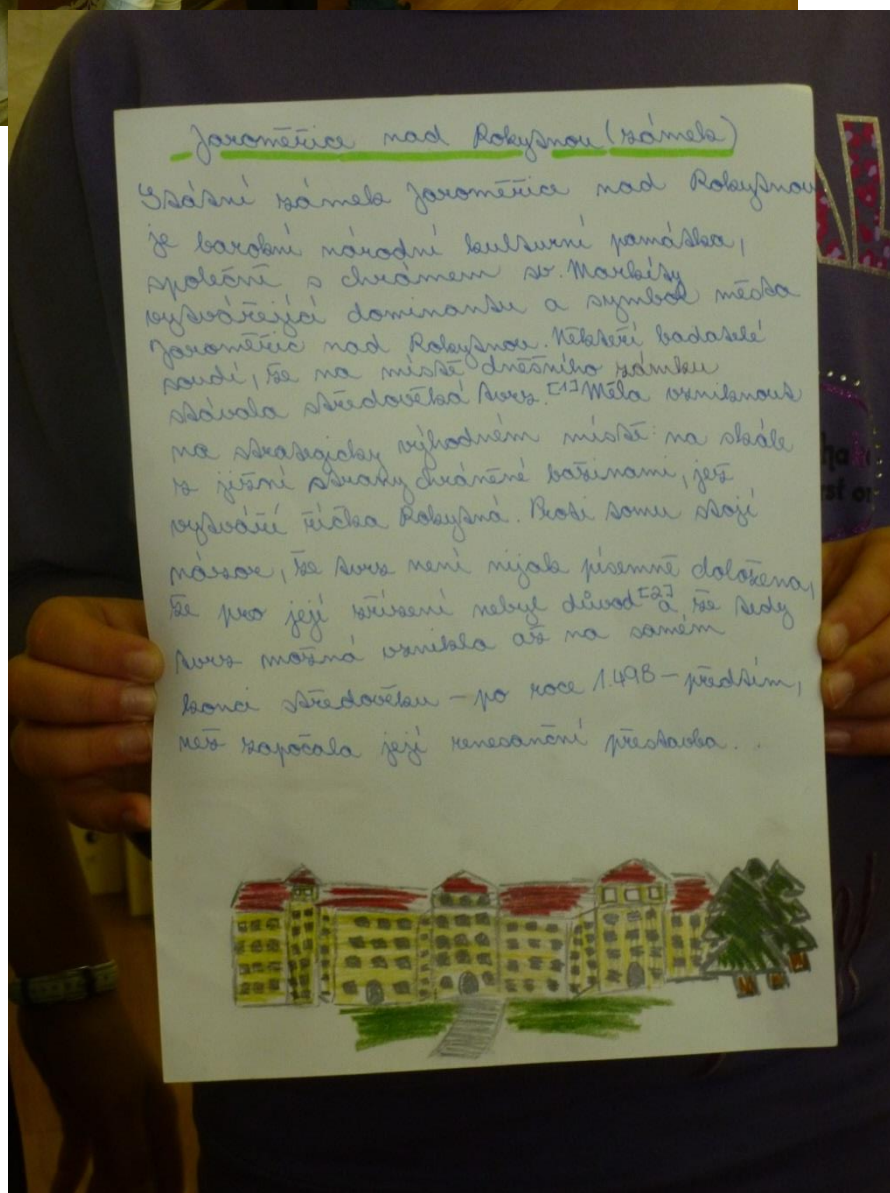 Jaroměřice nad Rokytnou (zámek)
Státní zámek Jaroměřice nad Rokytnou
je barokní národní kulturní památka,
společně s chrámem sv. Markéty
vytvářející dominantu a symbol města
Jaroměřic nad Rokytnou. Někteří badatelé
soudí, že na místě dnešního zámku
stávala středověká tvrz.[1] Měla vzniknout
na strategicky výhodném místě: na skále
z jižní strany chráněné bažinami, jež
vytváří říčka Rokytná. Proti tomu stojí
názor, že tvrz není nijak písemně doložena,
že pro její zřízení nebyl důvod[2] a že tedy
tvrz možná vznikla až na samém
konci středověku – po roce 1498 – předtím,
než započala její renesanční přestavba..